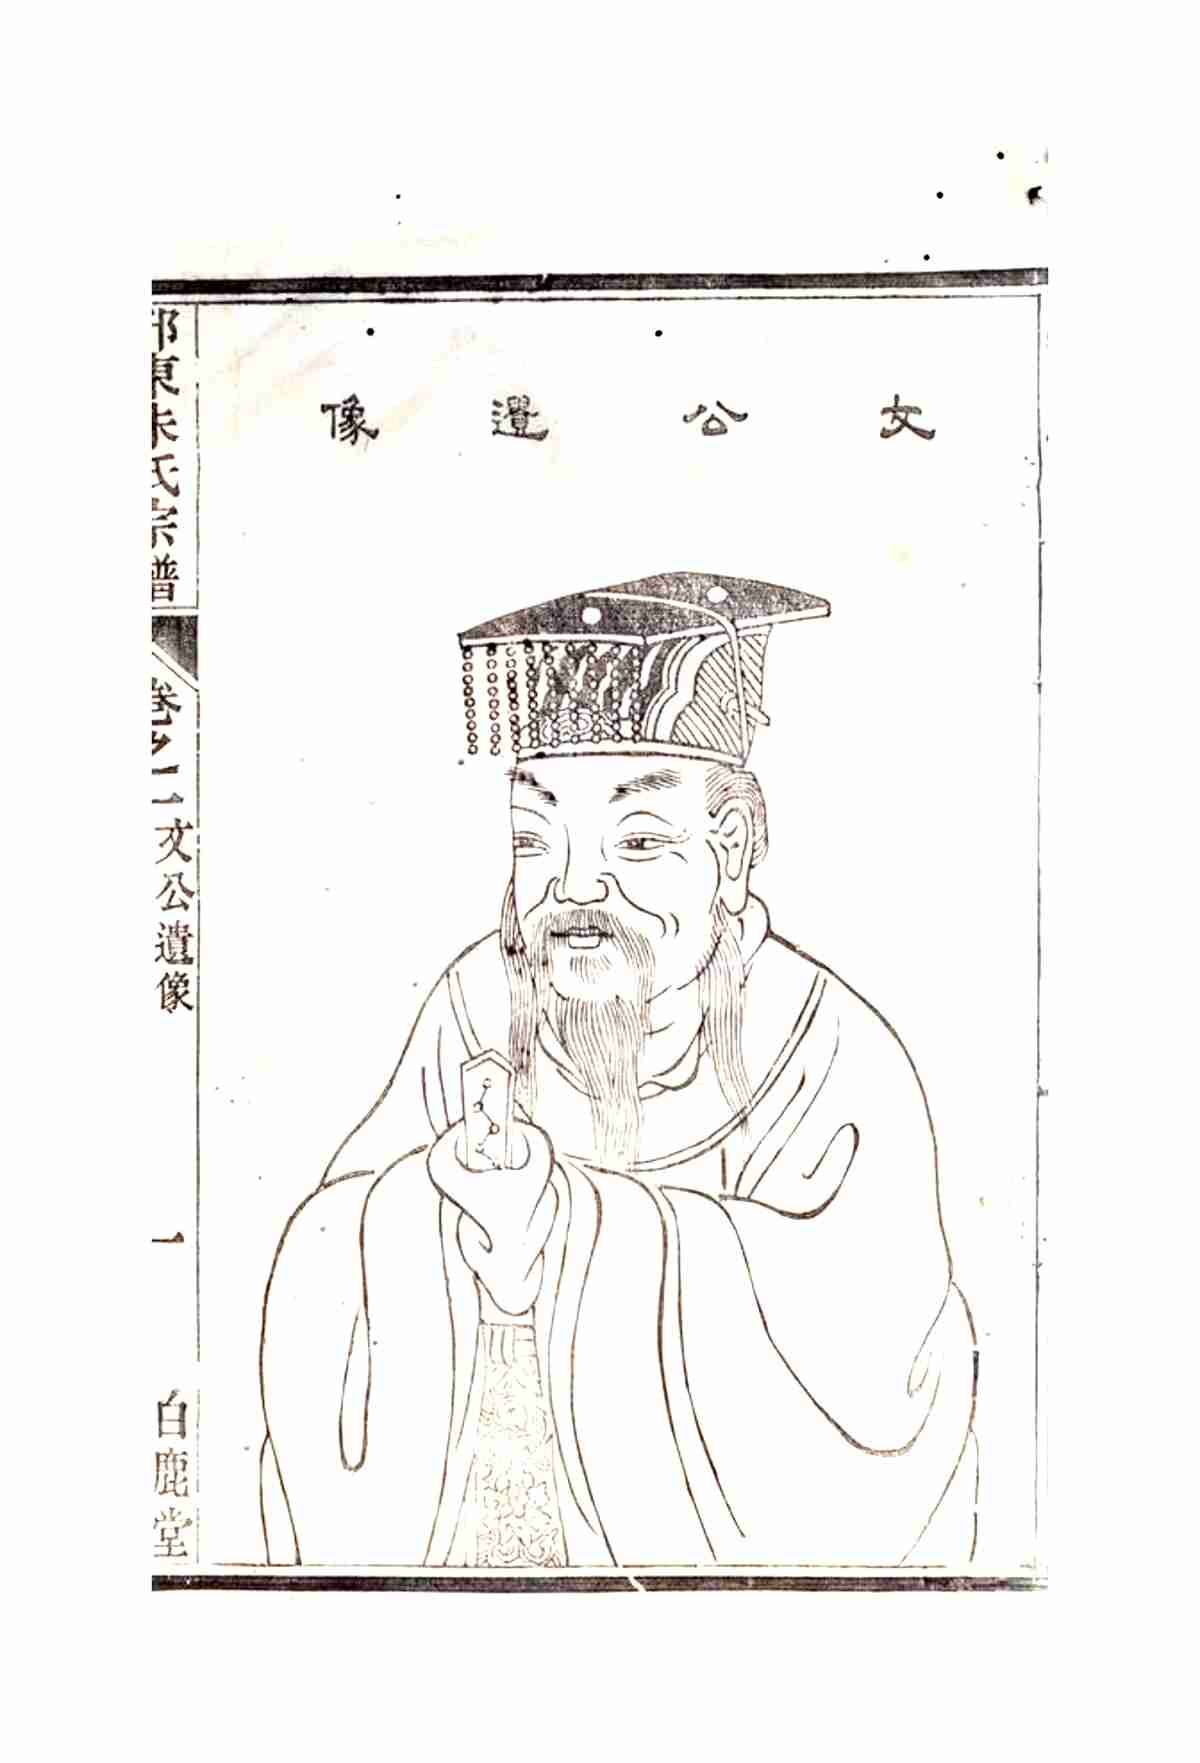 文公遺像
東朱氏宗譜
卷之二 文公遺像
一
白鹿堂